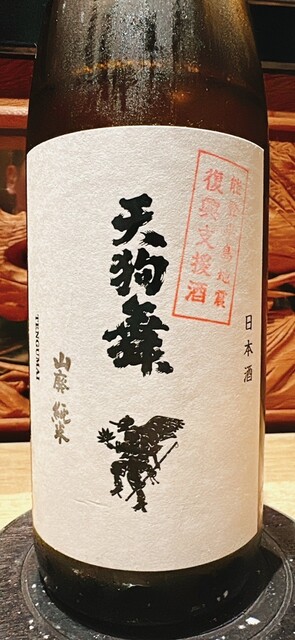 能登 島地震
復興支援酒
天狗舞
日本酒
TENGUMAI
山廃純米